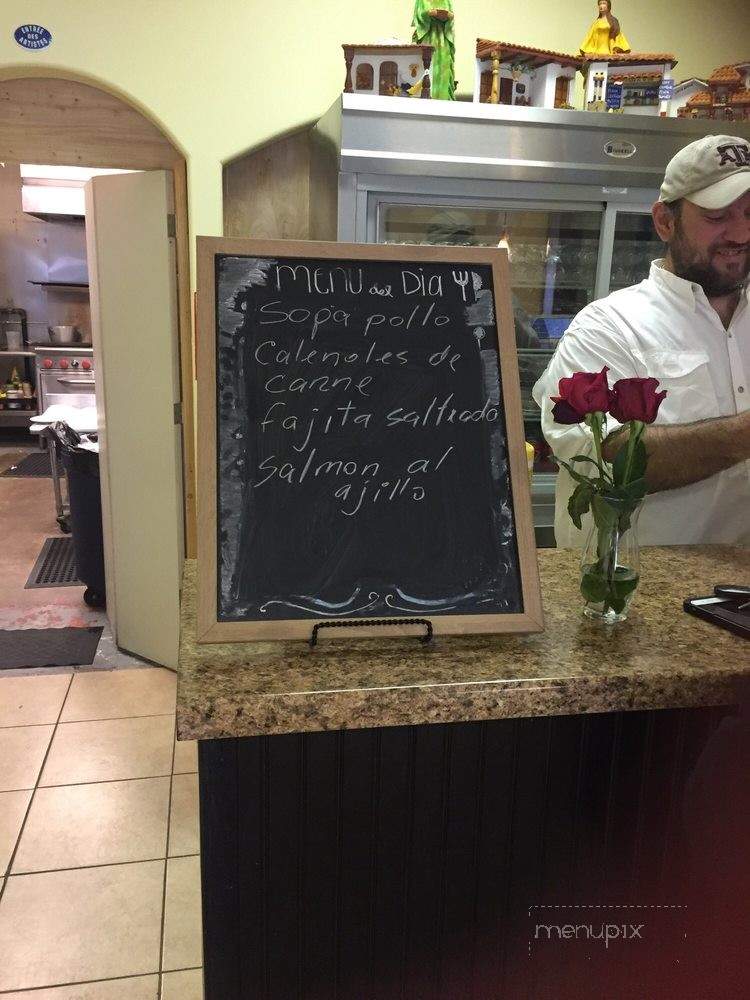 ENTRÉE
DES
ARTISTES
MENU del DIA
Sopa pollo
Calenoles de
carne
fajita saltxado
Salmon al
ajillo
ATM
menupix